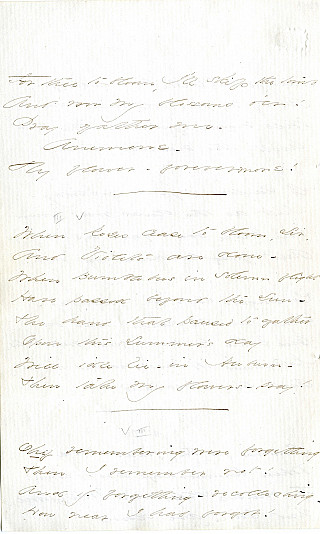 For thee to bloom, I'll skip the tomb
And row my blossoms o'er!
Pray gather me -
Anemone -
Thy flower - forevermore!
When Roses cease to bloom, Sir,
And Violets are done -
When Bumblebees in solemn flight
Have passed beyond the Sun -
The hand that paused to gather
Upon this Summer's day
Will idle lie - in Auburn -
Then take my flowers - pray!
If remembering were forgetting
Then I remember not!
And if forgetting - recollecting -
How near I had forgot!